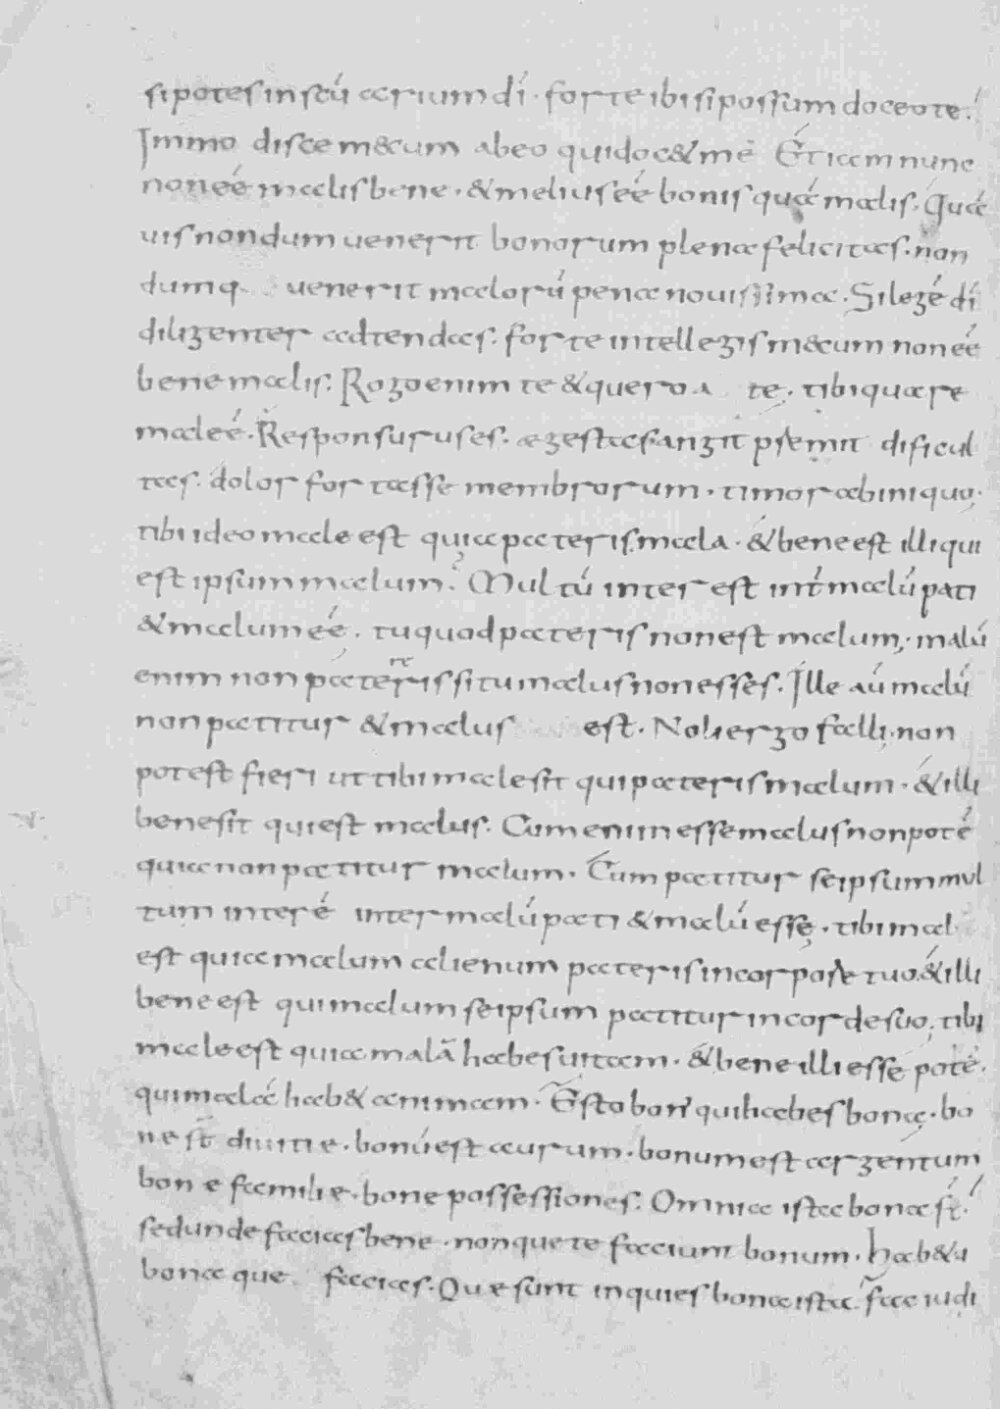 si potes in scū arium dī. forte ibi si possum doceo te.
Immo disce mecum ab eo qui docet me. Etiam nunc
non eē malis bene. & melius eē bonis quā malis. Quā
uis nondum uenerit bonorum plena felicitas. non
dumq uenerit malorū pena nouissima. Si legē dī
diligenter adtendas. forte intellegis mecum non eē
bene malis. Rogo enim te & quero a te. tibi quare
male ē. Responsurus es. aegestas angit premit dificul
tas. dolor fortasse membrorum. timor ab iniquo.
tibi ideo male est quia pateris mala. & bene est illi qui
est ipsum malum. Multū interest int̄ malū pati
& malum eē. tu quod pateris non est malum. malū
enim non patereris si tu malus non esses. Ille aū malū
non patitur & malus est. Noli ergo falli. non
potest fieri ut tibi male sit qui pateris malum. & illi
bene sit qui est malus. Cum enim esse malus non potē
quia non patitur malum. Cum patitur seipsum mul
tum interē inter malū pati & malū esse. tibi mal
est quia malum alienum pateris in corpore tuo. & illi
bene est qui malum seipsum patitur in corde suo. tibi
male est quia malā habes uitam. & bene illi esse potē.
qui malā habet animam. Esto bon' qui habes bona. bo
ne st diuitie. bonū est aurum. bonum est argentum
bone familie. bone possessiones. Omnia ista bona st.
sed unde facias bene. non que te facium bonum. Habeta
bona que facias. Que sunt inquies bona ista. fac iudi